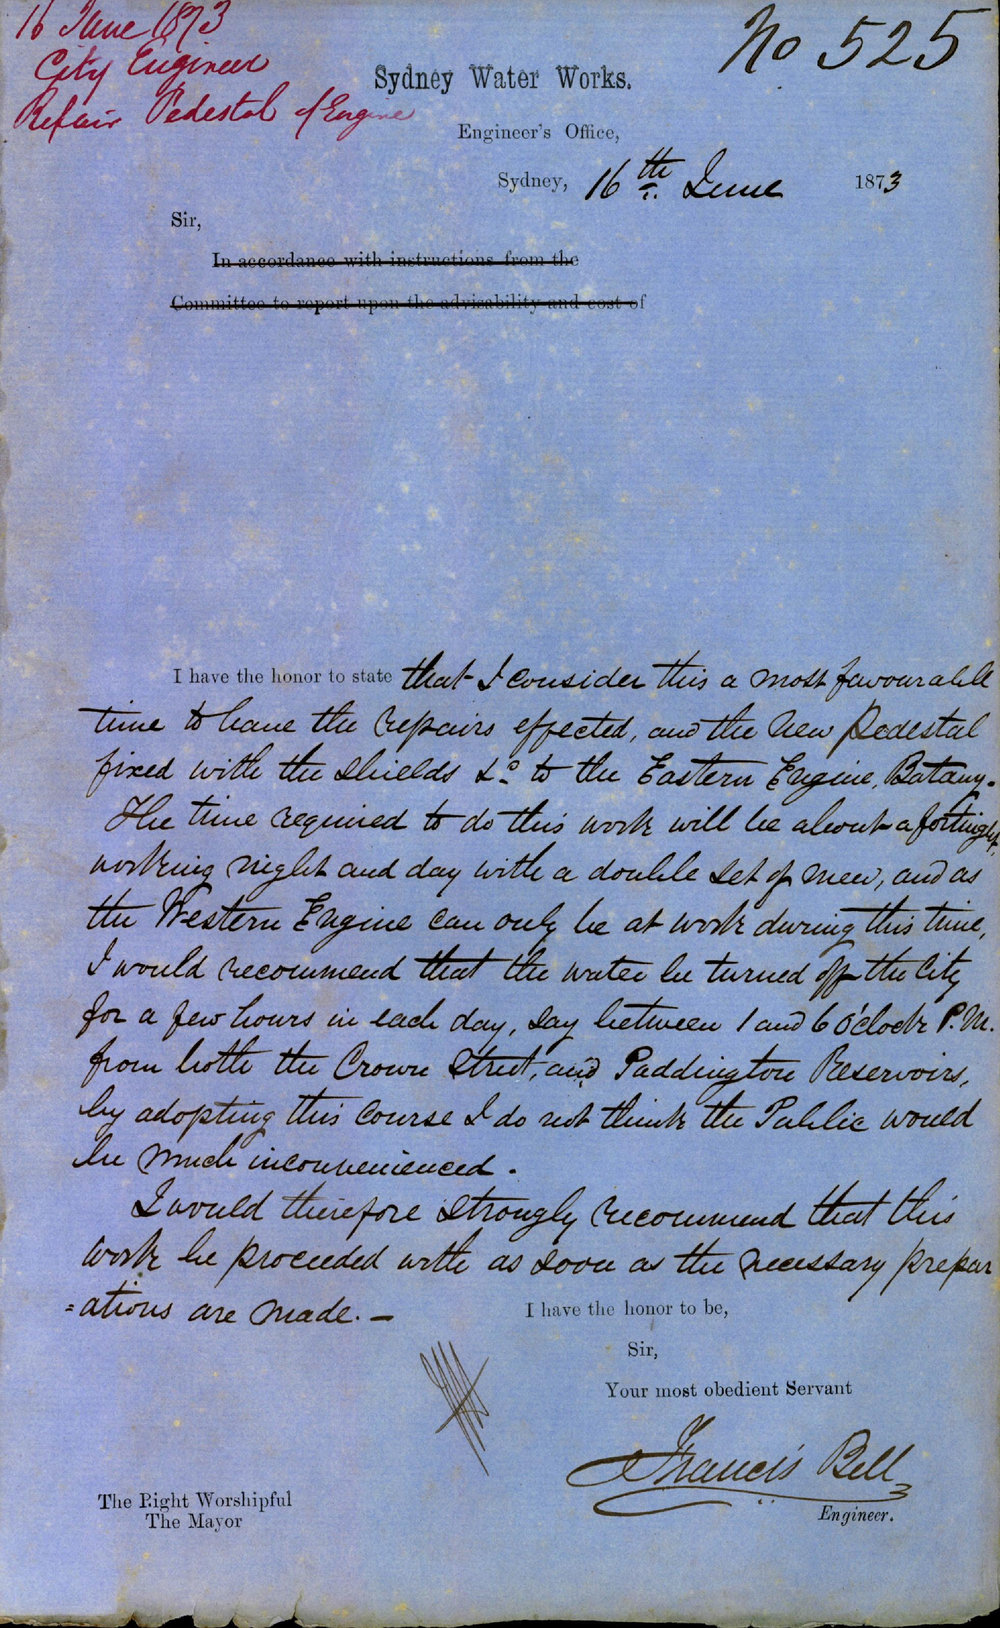 16 June 1873
City Engineer
Repair Pedestal of Engine
No 525
Sydney Water Works.
Engineer's Office,
Sydney, 16th June 1873
Sir,
In accordance with instructions from the
Committee to report upon the advisability and cost of
I have the honor to state that I consider this a most favourable
time to have the repairs effected, and the new Pedestal
fixed with the shields &c to the Eastern Engine, Botany.
The time required to do this work will be about a fortnight,
working night and day with a double set of men, and as
the Western Engine can only be at work during this time,
I would recommend that the water be turned off the City
for a few hours in each day, say between 1 and 6 o'clock P.M.
from both the Crown Street, and Paddington Reservoirs,
by adopting this course I do not think the Public would
be much inconvenienced.
I would therefore strongly recommend that this
work be proceeded with as soon as the necessary prepar
=ations are made. —
I have the honor to be,
Sir,
Your most obedient Servant
Francis Bell
Engineer.
The Right Worshipful
The Mayor